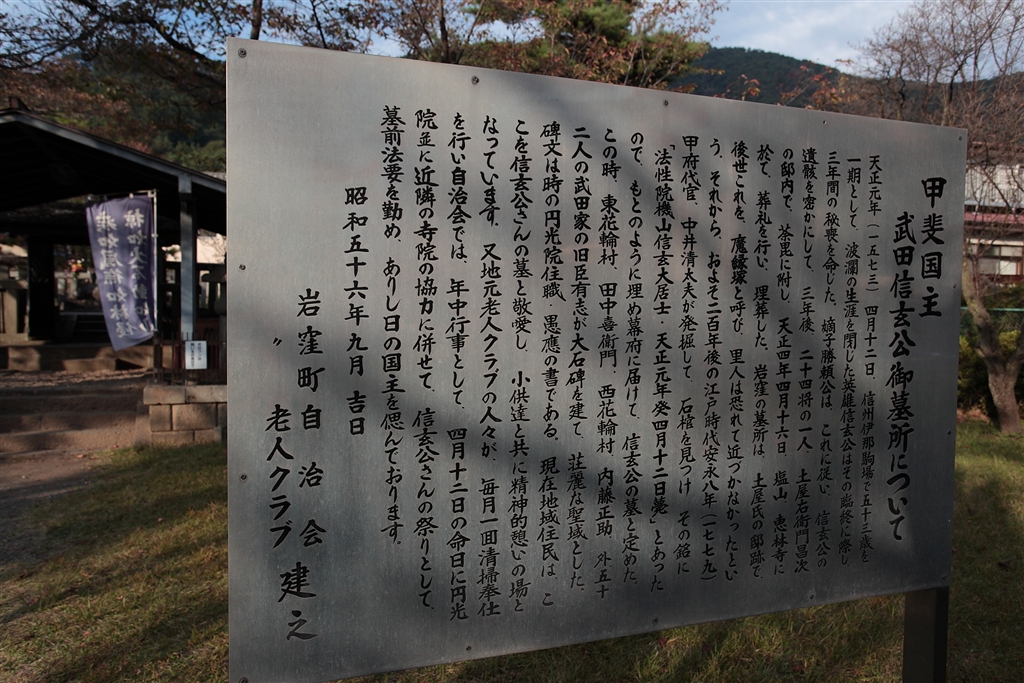 甲斐国主
武田信玄公御墓所について
天正元年(一五七三)四月十二日、信州伊那駒場で五十三歳を
一期として、波瀾の生涯を閉じた英雄信玄公はその臨終に際し
三年間の秘喪を命じた。嫡子勝頼公は、これに従い、信玄公の
遺骸を密かにして、三年後、二十四将の一人、土屋右衛門昌次
の邸内で、荼毘に附し、天正四年四月十六日、塩山、恵林寺に
於て、葬礼を行い、埋葬した。岩窪の墓所は、土屋氏の邸跡で、
後世これを、魔縁塚と呼び、里人は恐れて近づかなかったとい
う。それから、およそ二百年後の江戸時代安永八年(一七七九)
甲府代官、中井清太夫が発掘して、石棺を見つけ、その銘に
「法性院機山信玄大居士・天正元年癸四月十二日薨」とあった
ので、もとのように埋め幕府に届けて、信玄公の墓と定めた。
この時、東花輪村、田中喜衛門、西花輪村、内藤正助、外五十
二人の武田家の旧臣有志が大石碑を建て、荘麗な聖域とした。
碑文は時の円光院住職・愚應の書である。現在地域住民は、こ
こを信玄公さんの墓と敬愛し、小供達と共に精神的憩いの場と
なっています。又地元老人クラブの人々が、毎月一回清掃奉仕
を行い自治会では、年中行事として、四月十二日の命日に円光
院並に近隣の寺院の協力に併せて、信玄公さんの祭りとして、
墓前法要を勤め、ありし日の国主を偲んでおります。
昭和五十六年九月 吉日
岩窪町自治会
〃 老人クラブ 建之